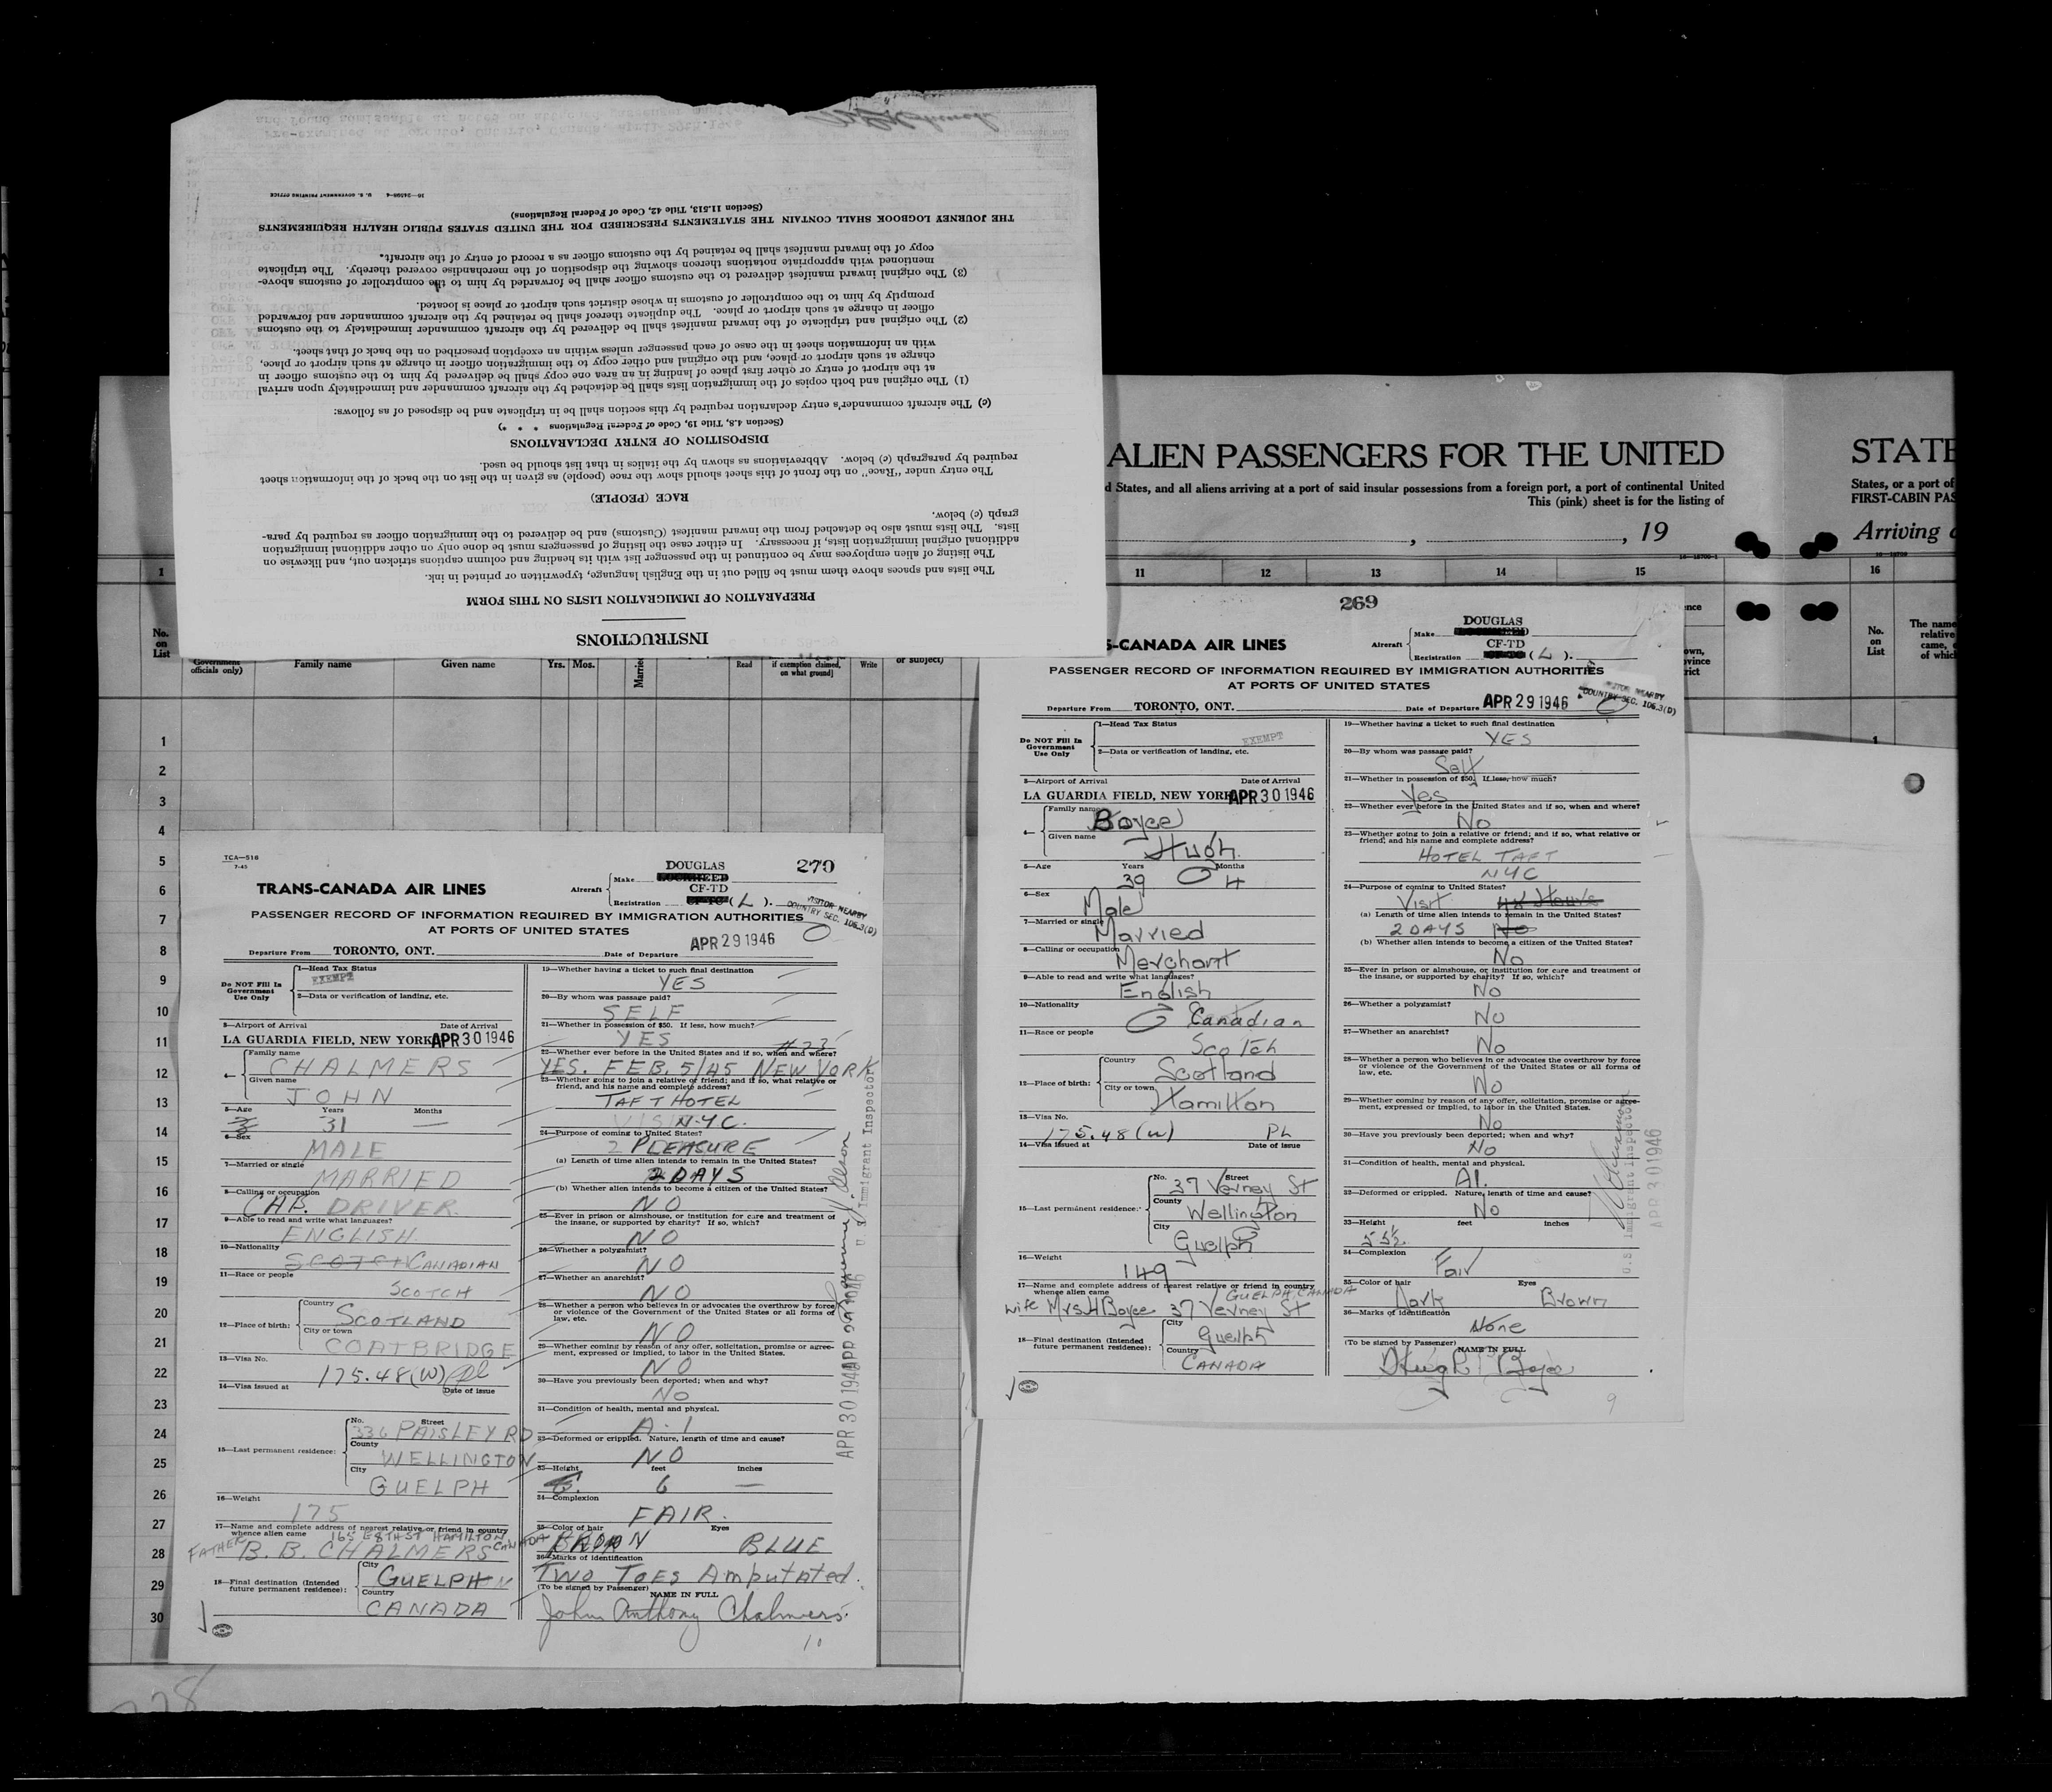 INSTRUCTIONS
PREPARATION OF IMMIGRATION LISTS ON THIS FORM
The lists and spaces above them must be filled out in the English language, typewritten or printed in ink.
The listing of alien employees may be continued in the passenger list with its heading and column captions stricken out, and likewise on
additional original immigration lists, if necessary. In either case the listing of passengers must be done only on other additional immigration
lists. The lists must also be detached from the inward manifest (Customs) and be delivered to the immigration officer as required by para-
graph (c) below.
RACE (PEOPLE)
The entry under "Race" on the front of this sheet should show the race (people) as given in the list on the back of the information sheet
required by paragraph (c) below. Abbreviations as shown by the italics in that list should be used.
DISPOSITION OF ENTRY DECLARATIONS
(Section 4.8, Title 19, Code of Federal Regulations * * *)
(c) The aircraft commander's entry declaration required by this section shall be in triplicate and be disposed of as follows:
(1) The original and both copies of the immigration lists shall be detached by the aircraft commander and immediately upon arrival
at the airport of entry or other first place of landing in an area one copy shall be delivered by him to the customs officer in
charge at such airport or place, and the original and other copy to the immigration officer in charge at such airport or place,
with an information sheet in the case of each passenger unless within an exception prescribed on the back of that sheet.
(2) The original and triplicate of the inward manifest shall be delivered by the aircraft commander immediately to the customs
officer in charge at such airport or place. The duplicate thereof shall be retained by the aircraft commander and forwarded
promptly by him to the comptroller of customs in whose district such airport or place is located.
(3) The original inward manifest delivered to the customs officer shall be forwarded by him to the comptroller of customs above-
mentioned with appropriate notations thereon showing the disposition of the merchandise covered thereby. The triplicate
copy of the inward manifest shall be retained by the customs officer as a record of entry of the aircraft.
THE JOURNEY LOGBOOK SHALL CONTAIN THE STATEMENTS PRESCRIBED FOR THE UNITED STATES PUBLIC HEALTH REQUIREMENTS
(Section 11.513, Title 42, Code of Federal Regulations)
U. S. GOVERNMENT PRINTING OFFICE
ALIEN PASSENGERS FOR THE UNITED
STATE
d States, and all aliens arriving at a port of said insular possessions from a foreign port, a port of continental United
This (pink) sheet is for the listing of
States, or a port of
FIRST-CABIN PAS
, , 19
Arriving
1 11 12 13 14 15 16
No. on List
Government officials only)
Family name
Given name
Yrs. Mos.
Read
if exemption claimed, on what ground]
Write
or subject)
No. on List
The name
relative
came,
of which
1
2
3
4
5
6
7
8
9
10
11
12
13
14
15
16
17
18
19
20
21
22
23
24
25
26
27
28
29
30
TCA—516
7-45
279
TRANS-CANADA AIR LINES
Aircraft Make DOUGLAS
CF-TD
Registration (L).
PASSENGER RECORD OF INFORMATION REQUIRED BY IMMIGRATION AUTHORITIES
AT PORTS OF UNITED STATES
VISITOR NEARBY
COUNTRY SEC. 106.3(D)
Departure From TORONTO, ONT. Date of Departure APR 29 1946
Do NOT Fill In Government Use Only
1—Head Tax Status
EXEMPT
2—Data or verification of landing, etc.
3—Airport of Arrival Date of Arrival
LA GUARDIA FIELD, NEW YORK APR 30 1946
4— Family name CHALMERS
Given name JOHN
5—Age Years 31 Months —
6—Sex MALE
7—Married or single MARRIED
8—Calling or occupation CAB. DRIVER.
9—Able to read and write what languages? ENGLISH.
10—Nationality SCOTCH CANADIAN
11—Race or people SCOTCH
12—Place of birth: Country SCOTLAND
City or town COATBRIDGE
13—Visa No. 175.48(W)
14—Visa issued at Date of issue
15—Last permanent residence: No. 336 Street PAISLEY RD
County WELLINGTON
City GUELPH
16—Weight 175
17—Name and complete address of nearest relative or friend in country
whence alien came 165 E 8TH ST HAMILTON CANADA
FATHER B. B. CHALMERS
18—Final destination (Intended future permanent residence): City GUELPH
Country CANADA
19—Whether having a ticket to such final destination
YES
20—By whom was passage paid?
SELF
21—Whether in possession of $50. If less, how much?
YES
22—Whether ever before in the United States and if so, when and where?
YES. FEB. 5/45 NEW YORK
23—Whether going to join a relative or friend; and if so, what relative or
friend, and his name and complete address?
TAFT HOTEL
N.Y.C.
24—Purpose of coming to United States?
PLEASURE
(a) Length of time alien intends to remain in the United States?
2 DAYS
(b) Whether alien intends to become a citizen of the United States?
NO
25—Ever in prison or almshouse, or institution for care and treatment of
the insane, or supported by charity? If so, which?
NO
26—Whether a polygamist?
NO
27—Whether an anarchist?
NO
28—Whether a person who believes in or advocates the overthrow by force
or violence of the Government of the United States or all forms of
law, etc.
NO
29—Whether coming by reason of any offer, solicitation, promise or agree-
ment, expressed or implied, to labor in the United States.
NO
30—Have you previously been deported; when and why?
NO
31—Condition of health, mental and physical.
A.1
32—Deformed or crippled. Nature, length of time and cause?
NO
33—Height feet inches
6 —
34—Complexion
FAIR.
35—Color of hair Eyes
BLUE
36—Marks of identification
TWO TOES Amputated.
(To be signed by Passenger) NAME IN FULL
John Anthony Chalmers.
10
U. S. Immigrant Inspector
APR 30 1946
269
S-CANADA AIR LINES
Aircraft Make DOUGLAS
CF-TD
Registration (L).
PASSENGER RECORD OF INFORMATION REQUIRED BY IMMIGRATION AUTHORITIES
AT PORTS OF UNITED STATES
VISITOR NEARBY
COUNTRY SEC. 106.3(D)
Departure From TORONTO, ONT. Date of Departure APR 29 1946
Do NOT Fill In Government Use Only
1—Head Tax Status
2—Data or verification of landing, etc.
EXEMPT
3—Airport of Arrival Date of Arrival
LA GUARDIA FIELD, NEW YORK APR 30 1946
4— Family name Boyce
Given name Hugh.
5—Age Years 39 Months 4
6—Sex Male
7—Married or single Married
8—Calling or occupation Merchant
9—Able to read and write what languages? English
10—Nationality Canadian
11—Race or people Scotch
12—Place of birth: Country Scotland
City or town Hamilton
13—Visa No. 175.48(W) PL
14—Visa issued at Date of issue
15—Last permanent residence: No. 37 Street Verney St
County Wellington
City Guelph
16—Weight 149
17—Name and complete address of nearest relative or friend in country
whence alien came GUELPH, CANADA
wife Mrs H Boyce 37 Verney St
18—Final destination (Intended future permanent residence): City Guelph
Country CANADA
19—Whether having a ticket to such final destination
YES
20—By whom was passage paid?
Self
21—Whether in possession of $50. If less, how much?
Yes
22—Whether ever before in the United States and if so, when and where?
No
23—Whether going to join a relative or friend; and if so, what relative or
friend, and his name and complete address?
HOTEL TAFT
NYC
24—Purpose of coming to United States?
Visit 48 Hours
(a) Length of time alien intends to remain in the United States?
2 DAYS No
(b) Whether alien intends to become a citizen of the United States?
No
25—Ever in prison or almshouse, or institution for care and treatment of
the insane, or supported by charity? If so, which?
No
26—Whether a polygamist?
No
27—Whether an anarchist?
No
28—Whether a person who believes in or advocates the overthrow by force
or violence of the Government of the United States or all forms of
law, etc.
No
29—Whether coming by reason of any offer, solicitation, promise or agree-
ment, expressed or implied, to labor in the United States.
No
30—Have you previously been deported; when and why?
No
31—Condition of health, mental and physical.
A1.
32—Deformed or crippled. Nature, length of time and cause?
No
33—Height feet inches
5 5½
34—Complexion
Fair
35—Color of hair Eyes
Dark Brown
36—Marks of identification
None
(To be signed by Passenger) NAME IN FULL
Hugh Boyce
9
U.S. Immigrant Inspector
APR 30 1946